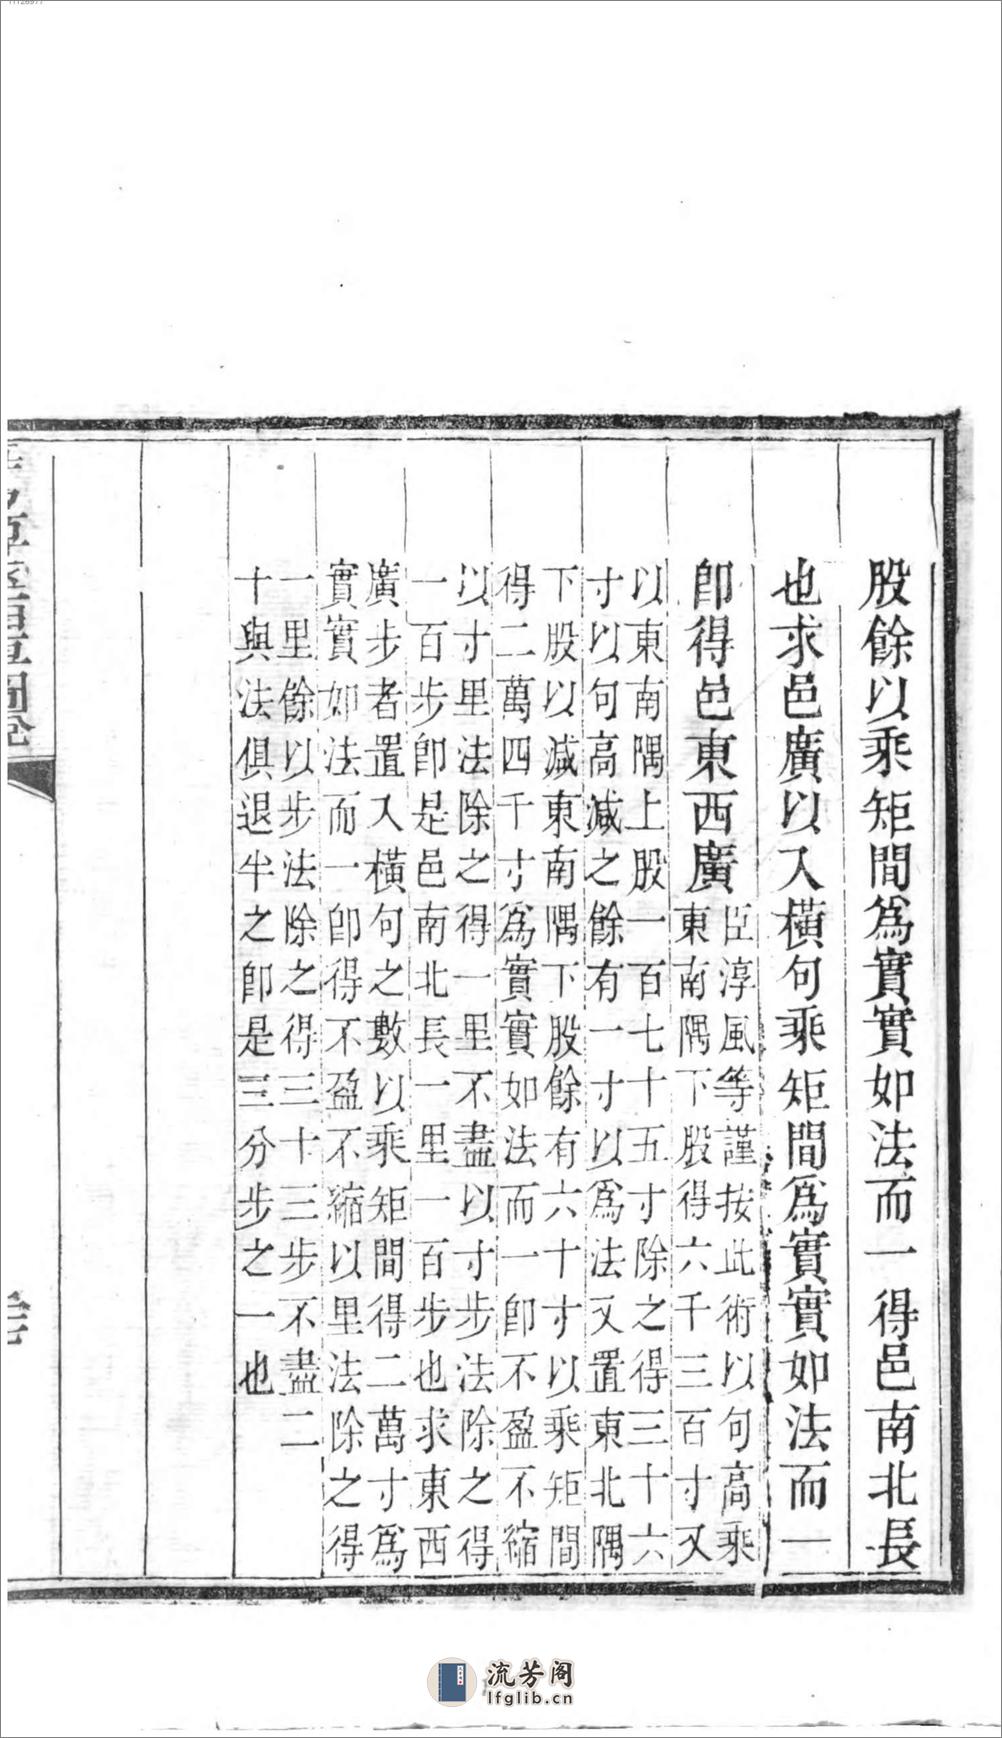 股餘以乘矩間爲實實如法而一得邑南北長
也求邑廣以入橫句乘矩間爲實實如法而一
卽得邑東西廣
臣淳風等謹按此術以句高乘
東南隅下股得六千三百寸又
以東南隅上股一百七十五寸除之得三十六
寸以句高減之餘有一寸以爲法又置東北隅
下股以減東南隅下股餘有六十寸以乘矩間
得二萬四千寸爲實實如法而一卽不盈不縮
以寸里法除之得一里不盡以寸步法除之得
一百步卽是邑南北長一里一百步也求東西
廣步者置入橫句之數以乘矩間得二萬寸爲
實實如法而一卽得不盈不縮以里法除之得
一里餘以步法除之得三十三步不盡二
十與法俱退半之卽是三分步之一也
流芳阁
lfglib.cn